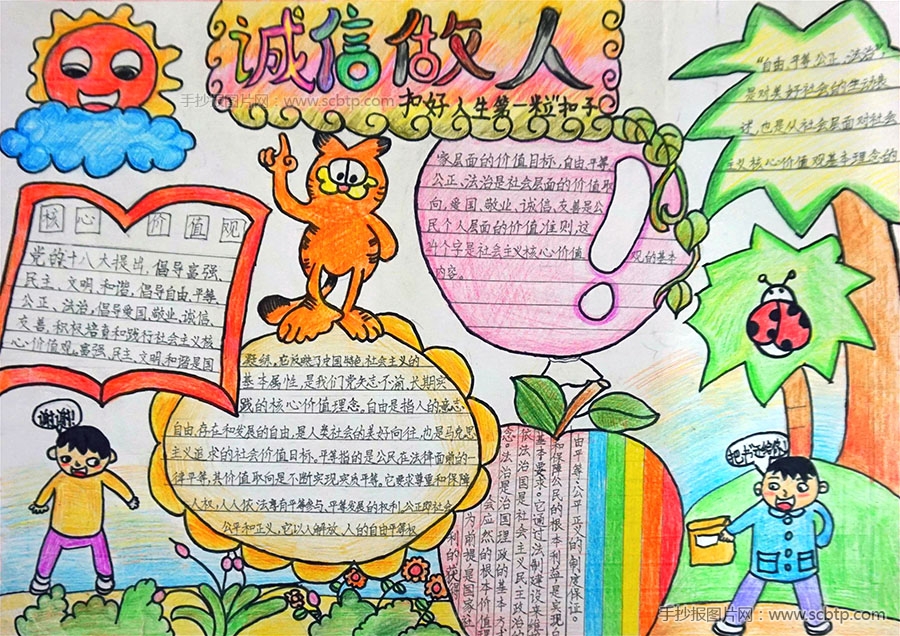 诚信做人
扣好人生第一粒"扣子"
手抄报图片网：www.scbtp.com
核心价值观
党的十八大提出,倡导富强、
民主、文明、和谐,倡导自由、平等、
公正、法治,倡导爱国、敬业、诚信、
友善,积极培育和践行社会主义核
心价值观。富强、民主、文明、和谐是国
家层面的价值目标,自由、平等、
公正、法治是社会层面的价值取
向,爱国、敬业、诚信、友善是公
民个人层面的价值准则,这
个字是社会主义核心价值观的基本
内容。
"自由、平等、公正、法治",
是对美好社会的生动表
述,也是从社会层面对社会
主义核心价值观基本理念的
凝练。它反映了中国特色社会主义的
基本属性,是我们党矢志不渝、长期实
践的核心价值理念。自由是指人的意志
自由、存在和发展的自由,是人类社会的美好向往,也是马克思
主义追求的社会价值目标。平等指的是公民在法律面前的一
律平等,其价值取向是不断实现实质平等。它要求尊重和保障
人权,人人依法享有平等参与、平等发展的权利。公正即社会
公平和正义,它以人解放、人的自由平等权
利的获得
为前提,是国家、社
会应然的根本价值理
念。法治是治国理政的基本方式,
依法治国是社会主义民主政治的
基本要求。它通过法制建设来维护
和保障公民的根本利益,是实现自
由平等、公平正义的制度保证。
谢谢!
把书还给你!
手抄报图片网：www.scbtp.com